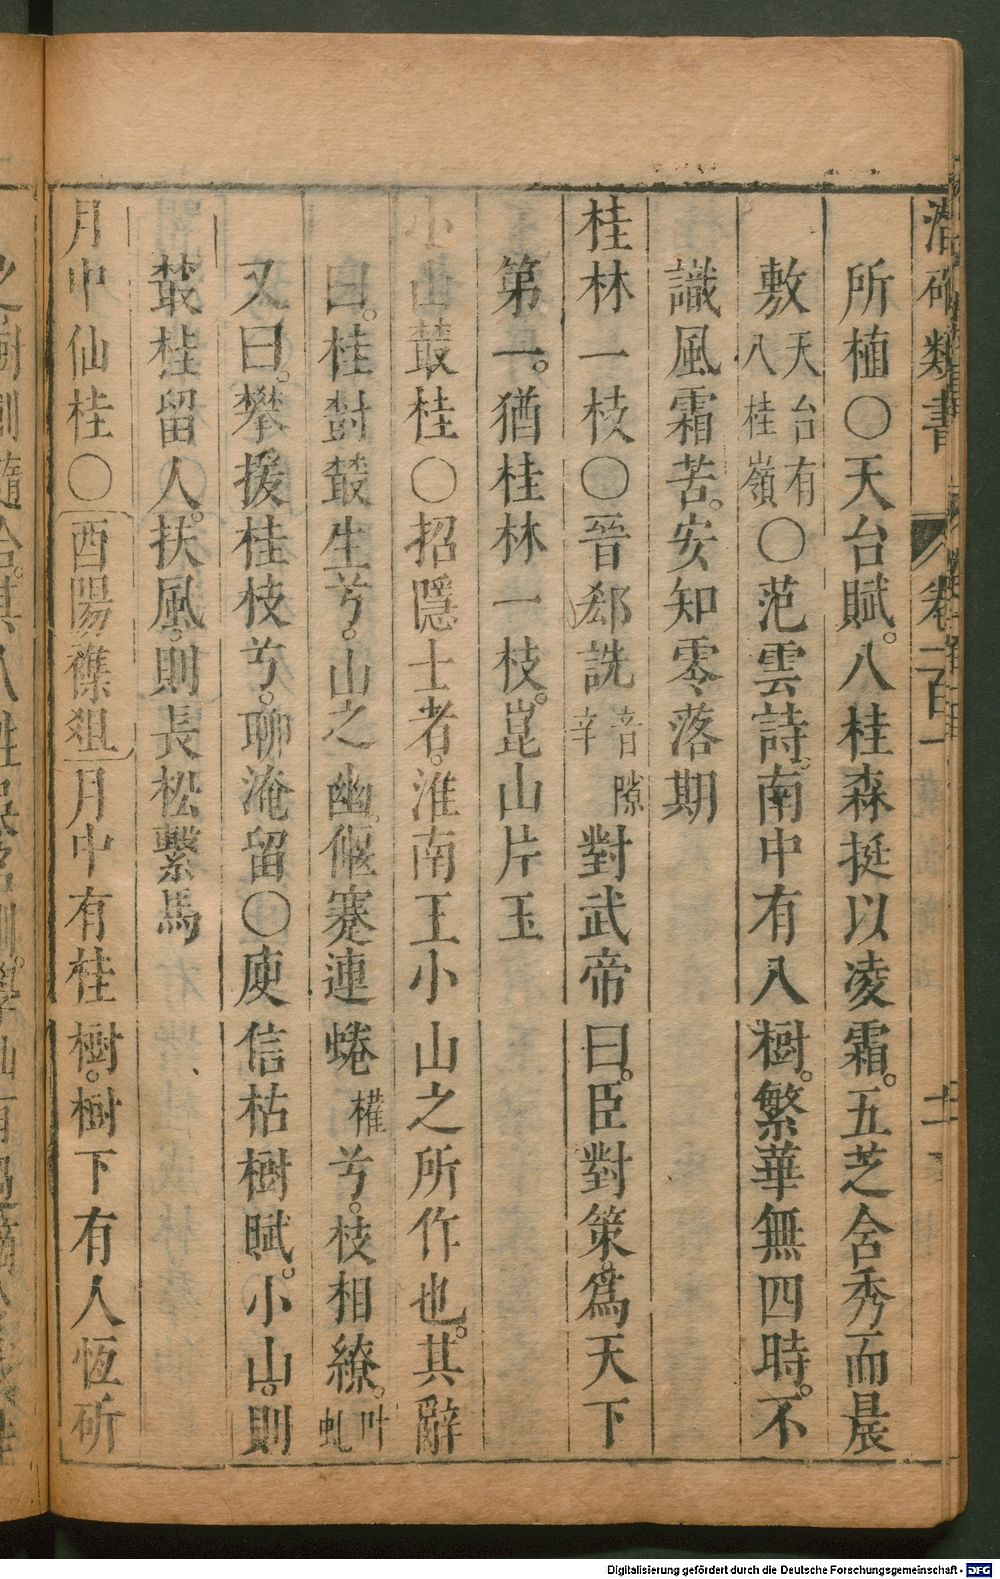 潛確類書 卷二百一 十二
所植○天台賦。八桂森挺以凌霜。五芝含秀而晨
敷天台有八桂嶺○范雲詩。南中有八樹。繁華無四時。不
識風霜苦。安知零落期
桂林一枝○晉郄詵音辛隙對武帝曰。臣對策。爲天下
第一。猶桂林一枝。崑山片玉
小山叢桂○招隱士者。淮南王小山之所作也。其辭
曰。桂樹叢生兮。山之幽。偃蹇連蜷權兮。枝相繚。叶虬
又曰。攀援桂枝兮。聊淹留○庾信枯樹賦。小山。則
叢桂留人。扶風。則長松繫馬
月中仙桂○酉陽雜俎月中有桂樹。樹下有人恆斫
Digitalisierung gefördert durch die Deutsche Forschungsgemeinschaft - DFG